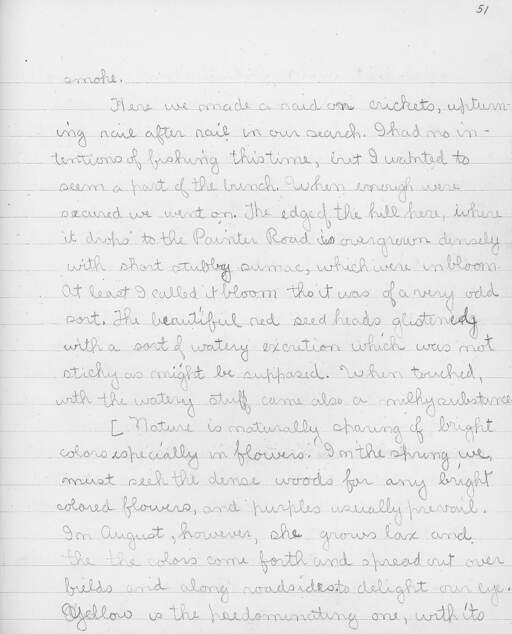 51
smoke.
Here we made a raid on crickets, upturn-
ing rail after rail in our search. I had no in-
tentions of fishing this time, but I wanted to
seem a part of the bunch. When enough were
secured we went on. The edge of the hill here, where
it drops to the Painter Road is overgrown densely
with short stubby sumac, which were in bloom.
At least I called it bloom tho it was of a very odd
sort. The beautiful red seed heads glistened
with a sort of watery excretion which was not
sticky as might be supposed. When touched,
with the watery stuff came also a milky substance
[ Nature is naturally sparing of bright
colors especially in flowers. In the spring we,
must seek the dense woods for any bright
colored flowers, and purples usually prevail.
In August, however, she grows lax and
the the colors come forth and spread out over
fields and along roadsides to delight our eye.
Yellow is the predominating one, with its